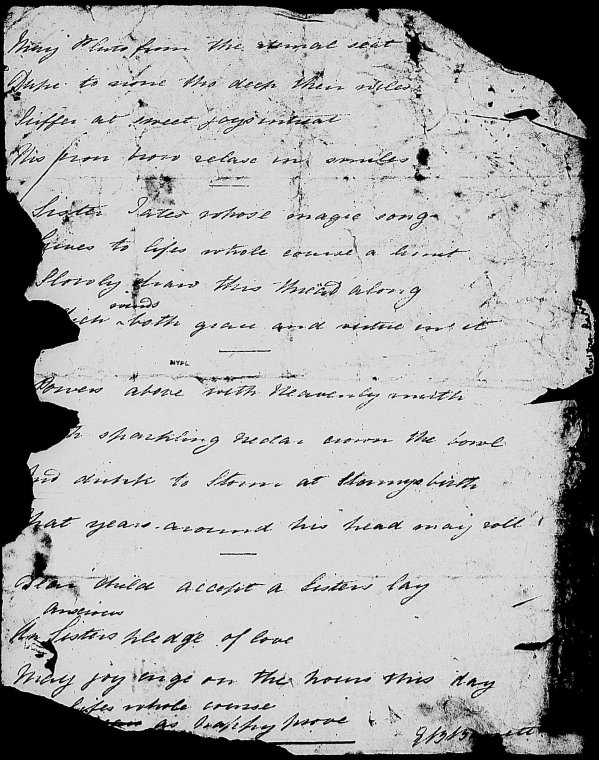 May Pluto from the 
Dupe to none tho deep their wiles
Suffer at sweet joys
His iron brow relax in smiles
Sister Fates whose magic song
Gives to lifes whole course a limit
Slowly draw this thread along
winds
both grace and virtue in it
Powers above with Heavenly mirth
sparkling nectar crown the bowl
And drink to Storm at Stormys birth
That years around his head may roll
Dear child accept a Sisters lay
anxious
An Sisters pledge of love
May joy urge on the hours this day
lifes whole course
as happy prove
NYPL